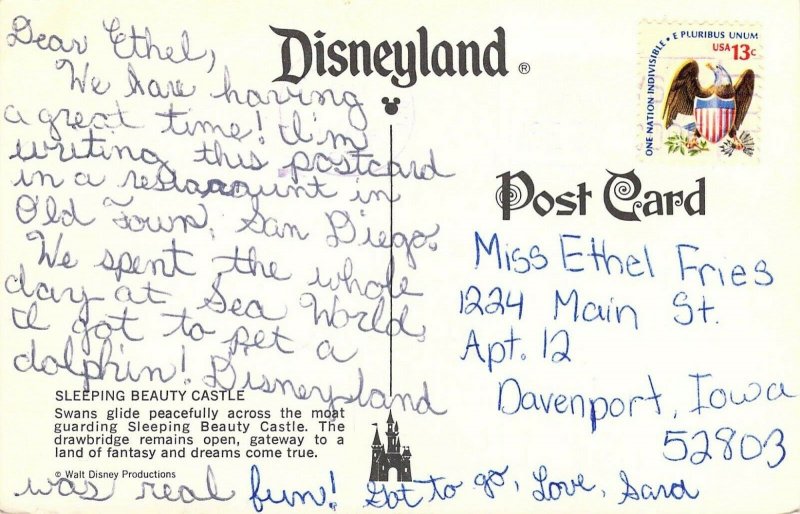 Dear Ethel,
We are having
a great time! I'm
writing this postcard
in a restaraount in
Old Town, San Diego.
We spent the whole
day at Sea World,
I got to pet a
dolphin! Disneyland
was real fun! Got to go, Love, Sara
SLEEPING BEAUTY CASTLE
Swans glide peacefully across the moat
guarding Sleeping Beauty Castle. The
drawbridge remains open, gateway to a
land of fantasy and dreams come true.
© Walt Disney Productions
Disneyland®
Post Card
ONE NATION INDIVISIBLE • E PLURIBUS UNUM
USA 13c
Miss Ethel Fries
1224 Main St.
Apt. 12
Davenport, Iowa
52803